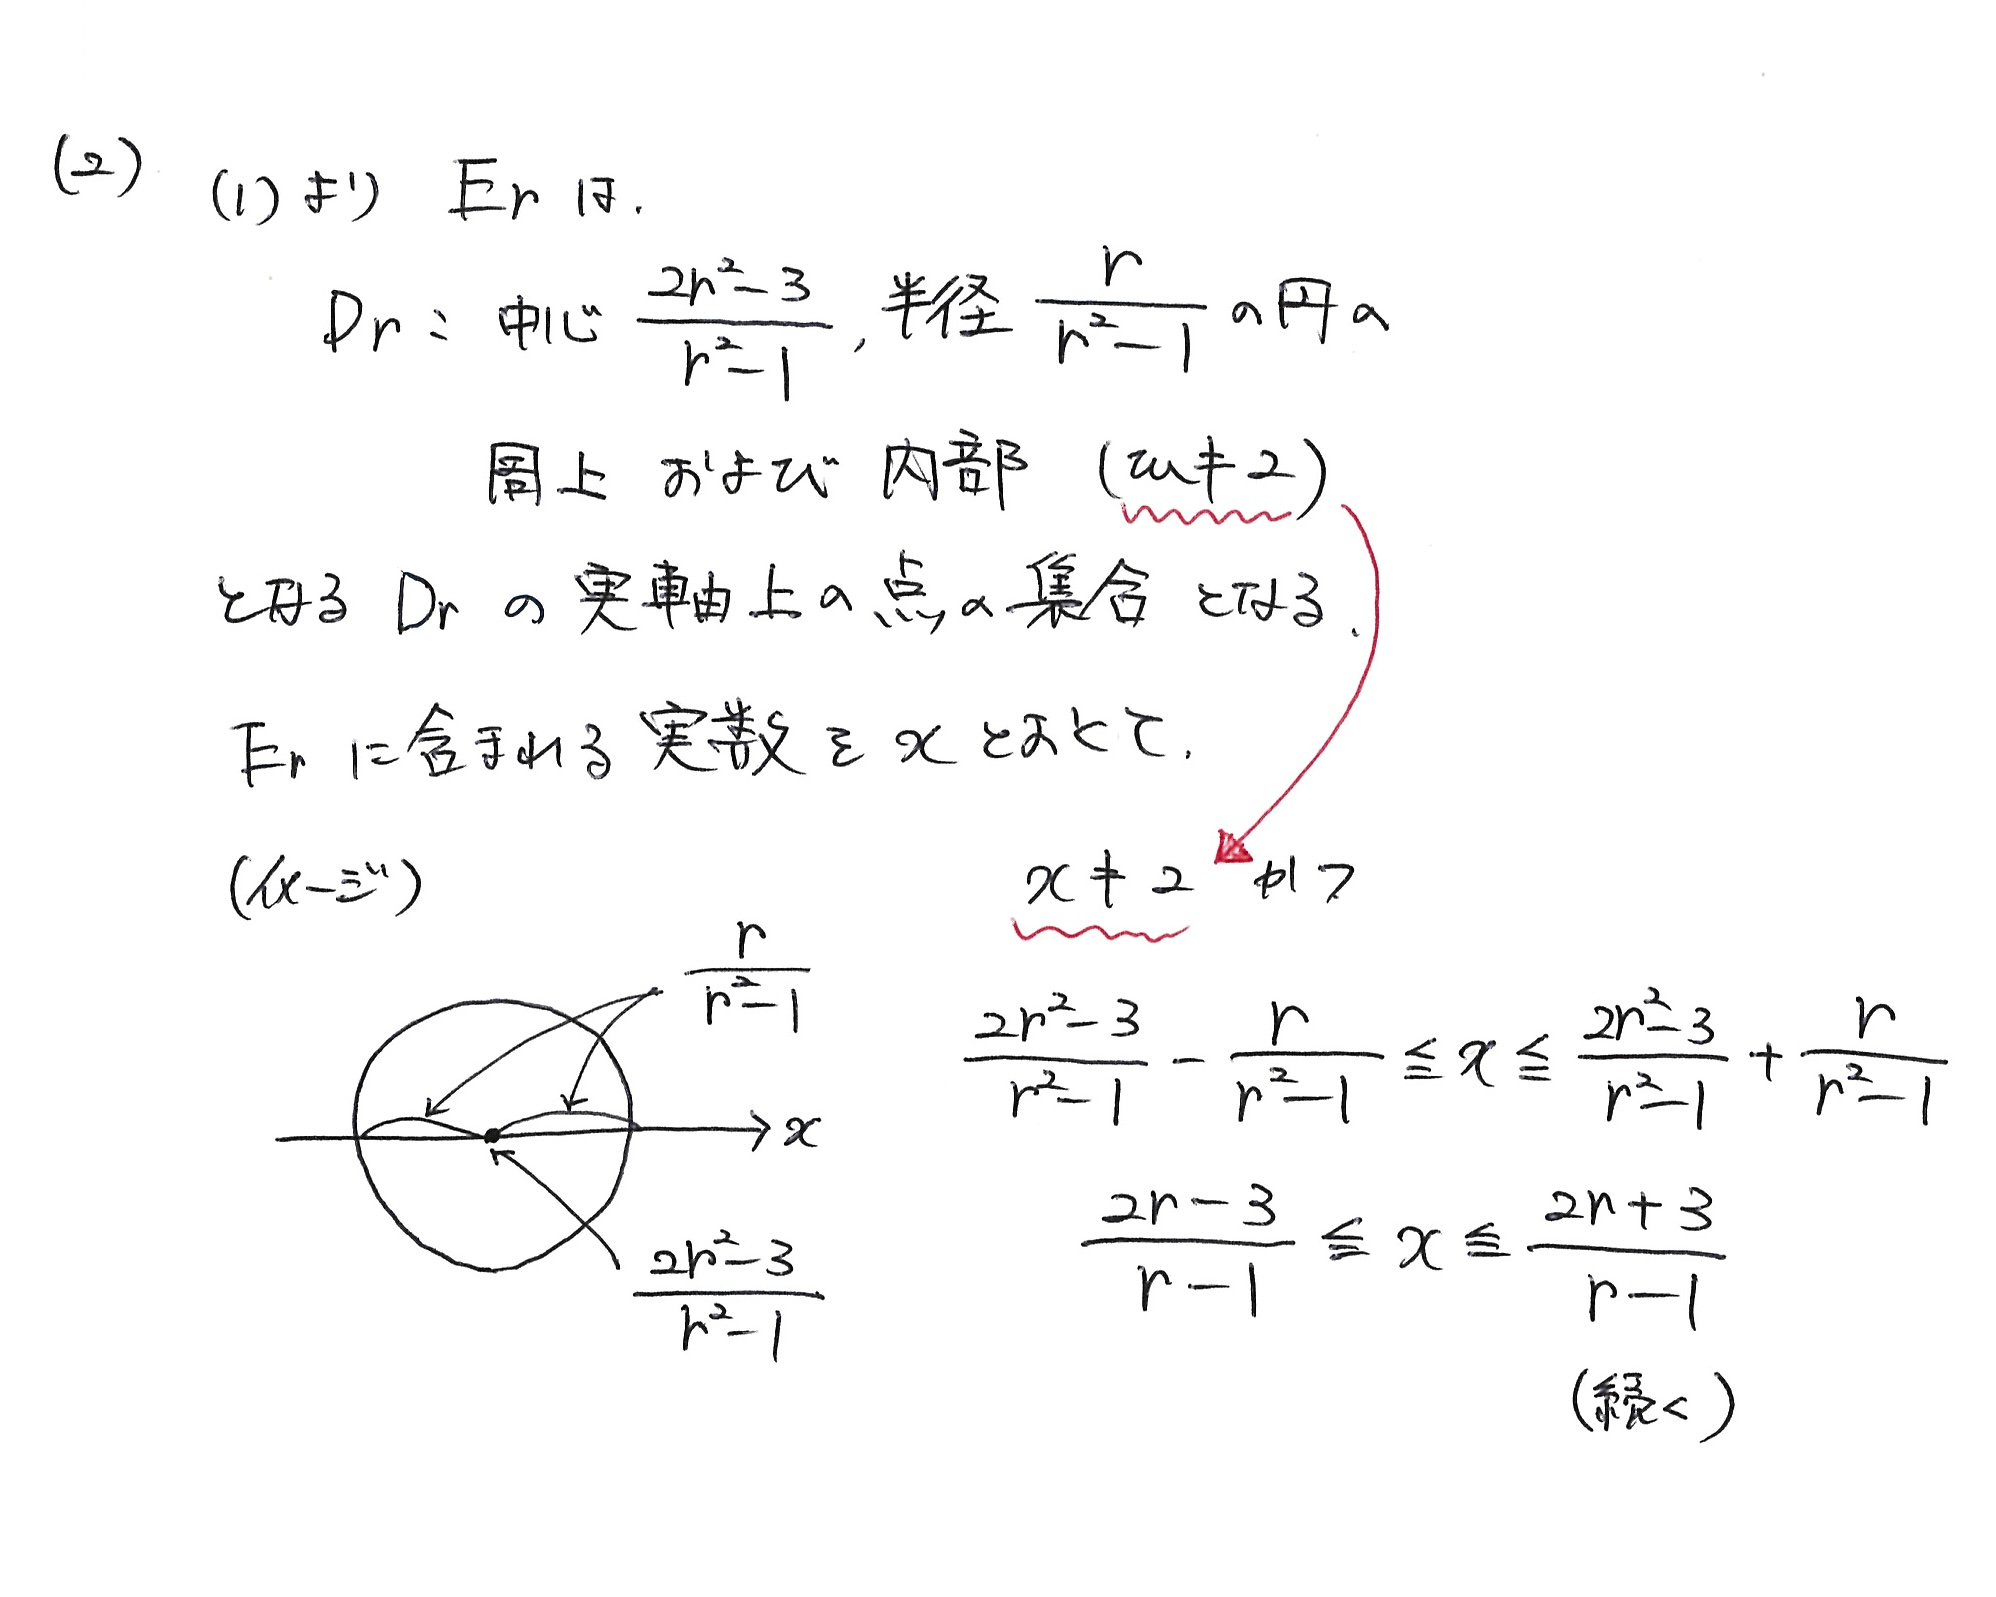 (2) (1)より Er は.
Dr: 中心 \frac{2r^2-3}{r^2-1}, 半径 \frac{r}{r^2-1} の円の
周上 および 内部 (w≠2)
となる Dr の 実軸上の点の集合 となる.
Er に含まれる実数を x とおくと,
(イメージ)
x≠2 かつ
\frac{r}{r^2-1}
\frac{2r^2-3}{r^2-1} - \frac{r}{r^2-1} ≦ x ≦ \frac{2r^2-3}{r^2-1} + \frac{r}{r^2-1}
x
\frac{2r-3}{r-1} ≦ x ≦ \frac{2r+3}{r-1}
\frac{2r^2-3}{r^2-1}
(続く)